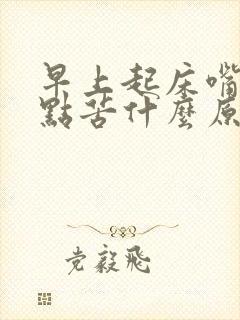 早上起床嘴
點苦什麼原
党毅飛